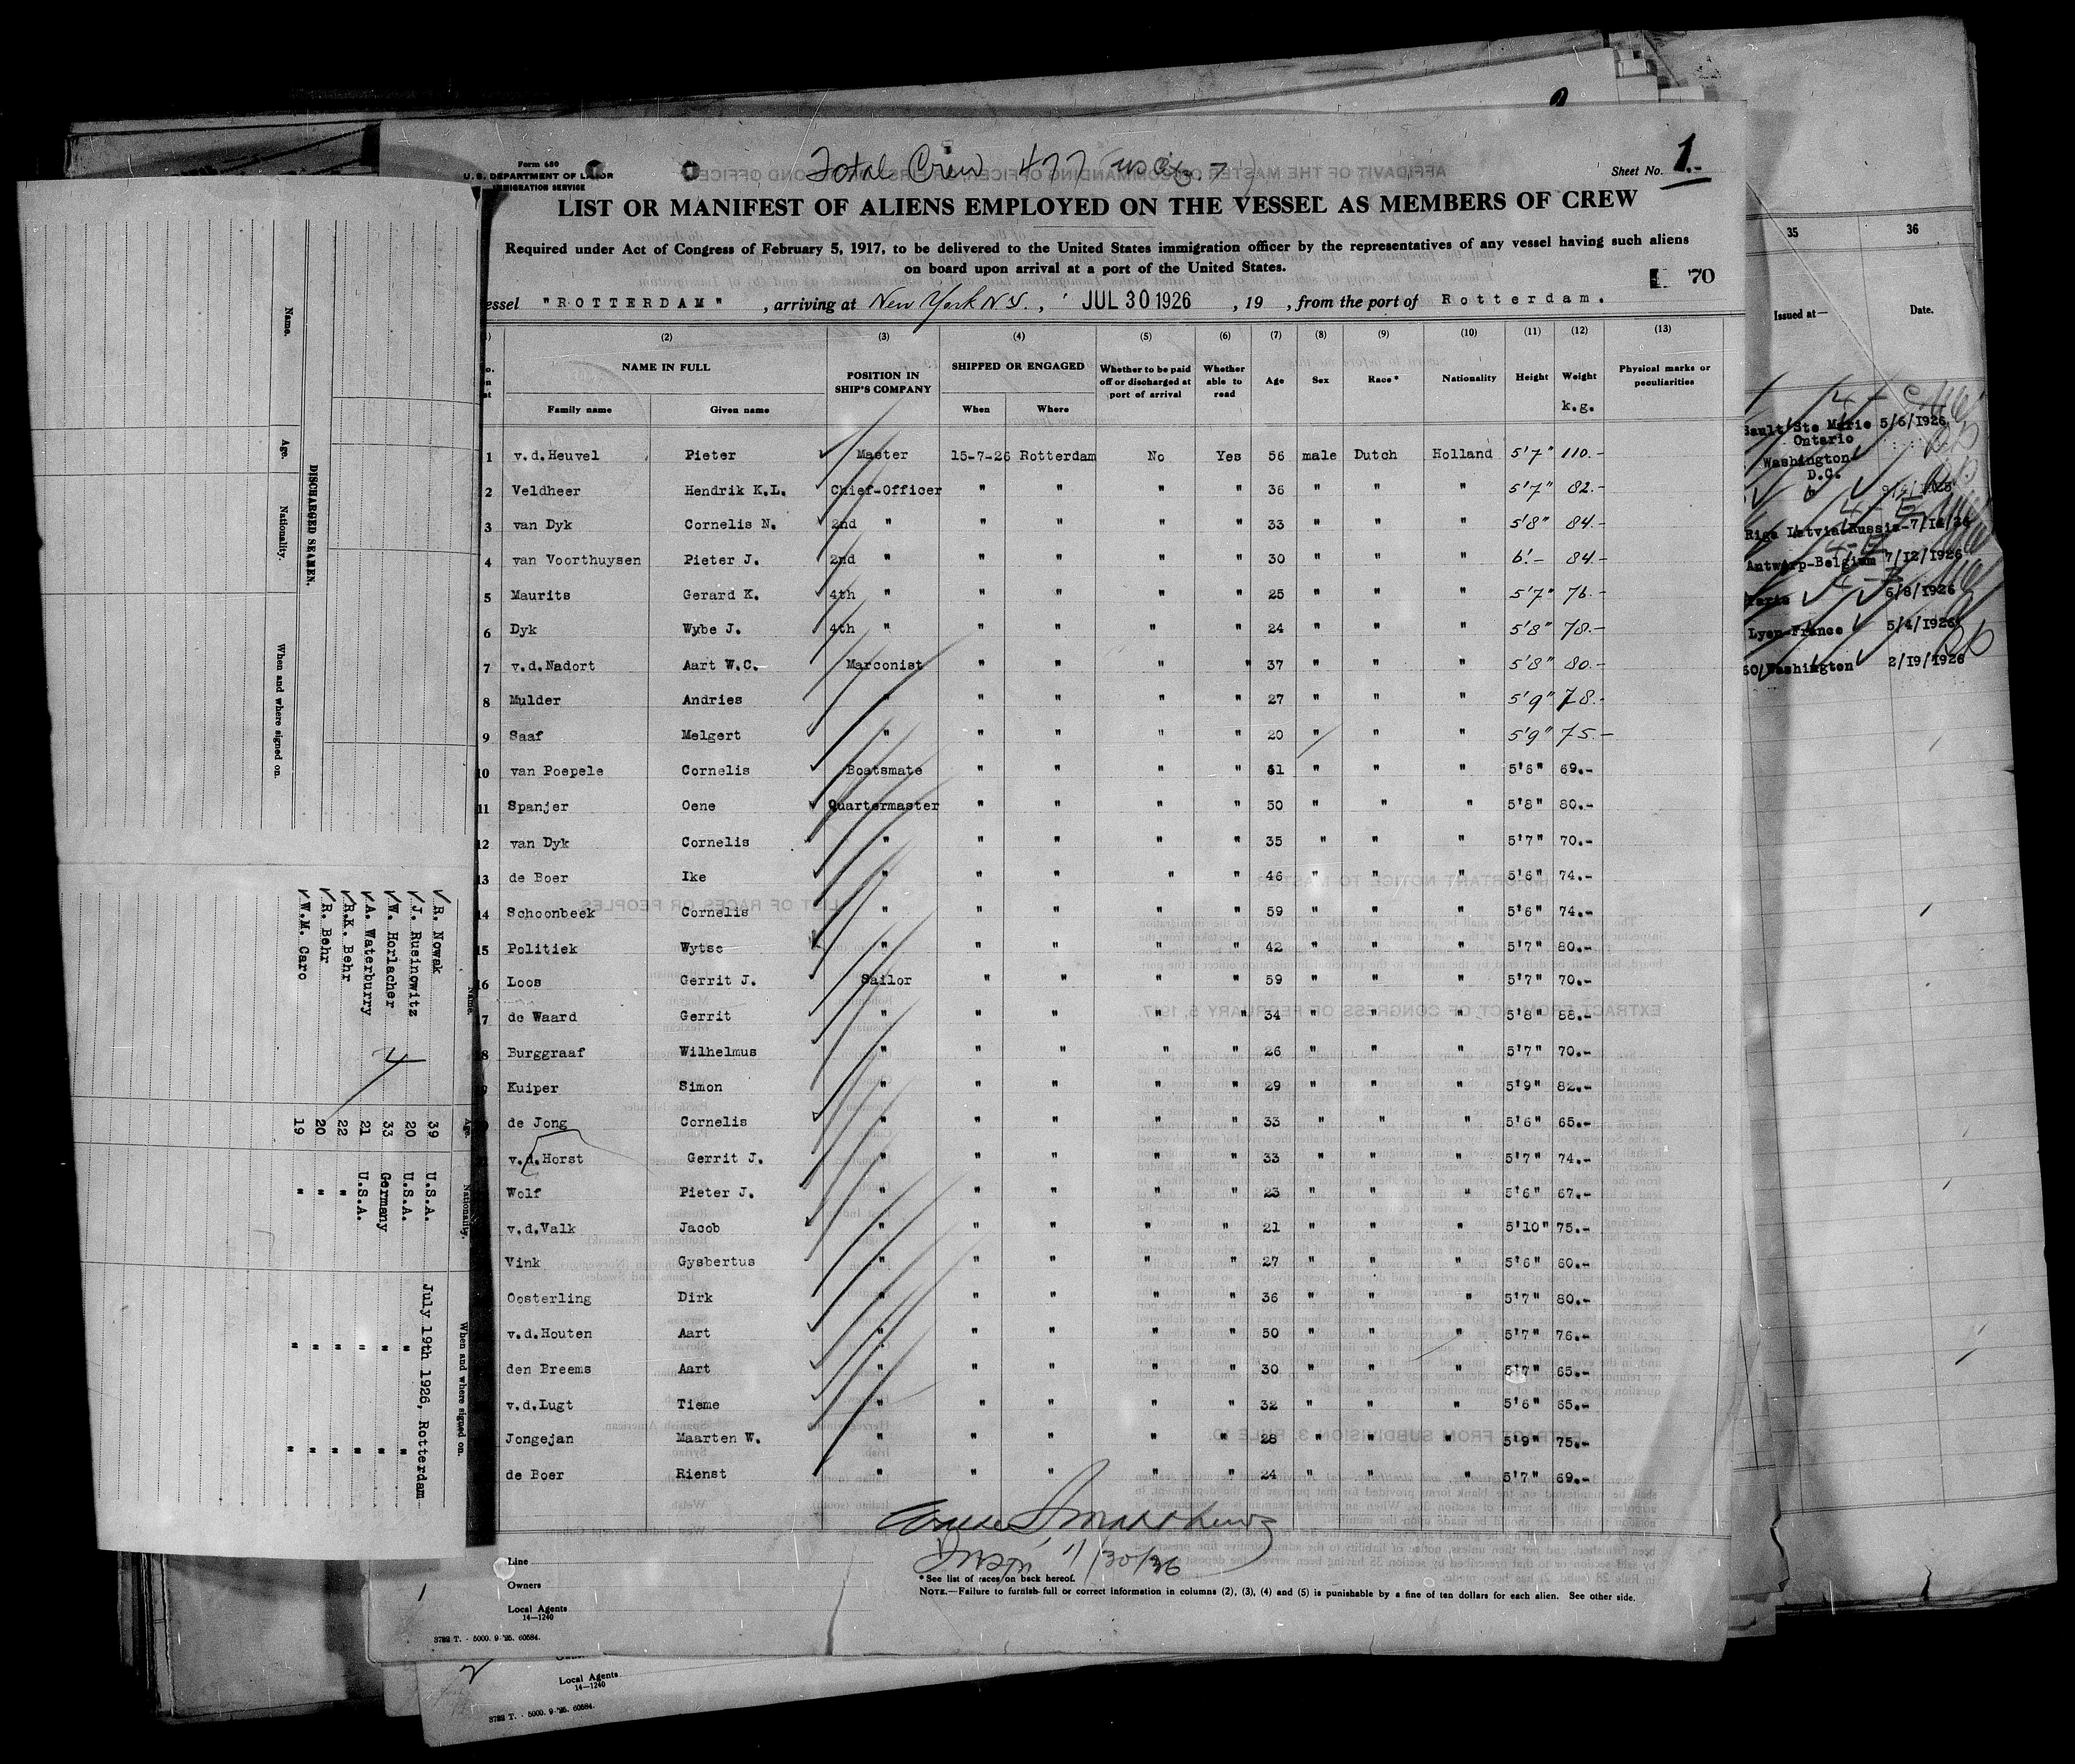 Form 680
U. S. DEPARTMENT OF LABOR
IMMIGRATION SERVICE
Total Crew 477 (US Ctz. 7)
Sheet No. 1.-
LIST OR MANIFEST OF ALIENS EMPLOYED ON THE VESSEL AS MEMBERS OF CREW
Required under Act of Congress of February 5, 1917, to be delivered to the United States immigration officer by the representatives of any vessel having such aliens
on board upon arrival at a port of the United States.
70
essel "ROTTERDAM", arriving at New York N.Y., JUL 30 1926, 19 , from the port of Rotterdam.
(2) (3) (4) (5) (6) (7) (8) (9) (10) (11) (12) (13)
NAME IN FULL POSITION IN SHIP'S COMPANY SHIPPED OR ENGAGED Whether to be paid off or discharged at port of arrival Whether able to read Age Sex Race* Nationality Height Weight k.g. Physical marks or peculiarities
Family name Given name When Where
1 v.d.Heuvel Pieter Master 15-7-26 Rotterdam No Yes 56 male Dutch Holland 5'7" 110.-
2 Veldheer Hendrik K.L. Chief-Officer " " " " 36 " " " 5'7" 82.-
3 van Dyk Cornelis N. 2nd " " " " " 33 " " " 5'8" 84.-
4 van Voorthuysen Pieter J. 2nd " " " " " 30 " " " 6'.- 84.-
5 Maurits Gerard K. 4th " " " " " 25 " " " 5'7" 76.-
6 Dyk Wybe J. 4th " " " " " 24 " " " 5'8" 78.-
7 v.d.Nadort Aart W.C. Marconist " " " " 37 " " " 5'8" 80.-
8 Mulder Andries " " " " " 27 " " " 5'9" 78.-
9 Saaf Melgert " " " " " 20 " " " 5'9" 75.-
10 van Poepele Cornelis Boatsmate " " " " 51 " " " 5'6" 69.-
11 Spanjer Oene Quartermaster " " " " 50 " " " 5'8" 80.-
12 van Dyk Cornelis " " " " " 35 " " " 5'7" 70.-
13 de Boer Ike " " " " " 46 " " " 5'6" 74.-
14 Schoonbeek Cornelis " " " " " 59 " " " 5'6" 74.-
15 Politiek Wytse " " " " " 42 " " " 5'7" 80.-
16 Loos Gerrit J. Sailor " " " " 59 " " " 5'7" 70.-
17 de Waard Gerrit " " " " " 34 " " " 5'8" 88.-
8 Burggraaf Wilhelmus " " " " " 26 " " " 5'7" 70.-
9 Kuiper Simon " " " " " 29 " " " 5'9" 82.-
de Jong Cornelis " " " " " 33 " " " 5'6" 65.-
v.d.Horst Gerrit J. " " " " " 33 " " " 5'7" 74.-
Wolf Pieter J. " " " " " 23 " " " 5'6" 67.-
v.d.Valk Jacob " " " " " 21 " " " 5'10" 75.-
Vink Gysbertus " " " " " 27 " " " 5'6" 60.-
Oosterling Dirk " " " " " 36 " " " 5'7" 80.-
v.d.Houten Aart " " " " " 50 " " " 5'7" 76.-
den Breems Aart " " " " " 30 " " " 5'7" 65.-
v.d.Lugt Tieme " " " " " 32 " " " 5'6" 65.-
Jongejan Maarten W. " " " " " 28 " " " 5'9" 75.-
de Boer Rienst " " " " " 24 " " " 5'7" 69.-
Line
Owners
Local Agents
14—1240
3722 T. - 5000. 9-'25. 60584.
*See list of races on back hereof.
NOTE.—Failure to furnish full or correct information in columns (2), (3), (4) and (5) is punishable by a fine of ten dollars for each alien. See other side.
Local Agents
14—1240
3722 T. - 5000. 9-'25. 60584.
DISCHARGED SEAMEN.
Name. Age. Nationality. When and where signed on.
Name. Age. Nationality. When and where signed on.
R. Nowak 39 U.S.A. July 19th 1926, Rotterdam
J. Rusinowitz 20 U.S.A. " "
W. Horlacher 33 Germany " "
A. Waterburry 21 U.S.A. " "
R.K. Behr 22 " " "
R. Behr 20 " " "
W.M. Caro 19 " " "
4
35 36
Issued at— Date.
Sault Ste Marie 5/6/1926
Ontario
Washington
D.C.
Riga Latvia Russia
Antwerp-Belgium 7/12/1926
Paris 6/8/1926
Lyon-France 5/4/1926
Washington 2/19/1926